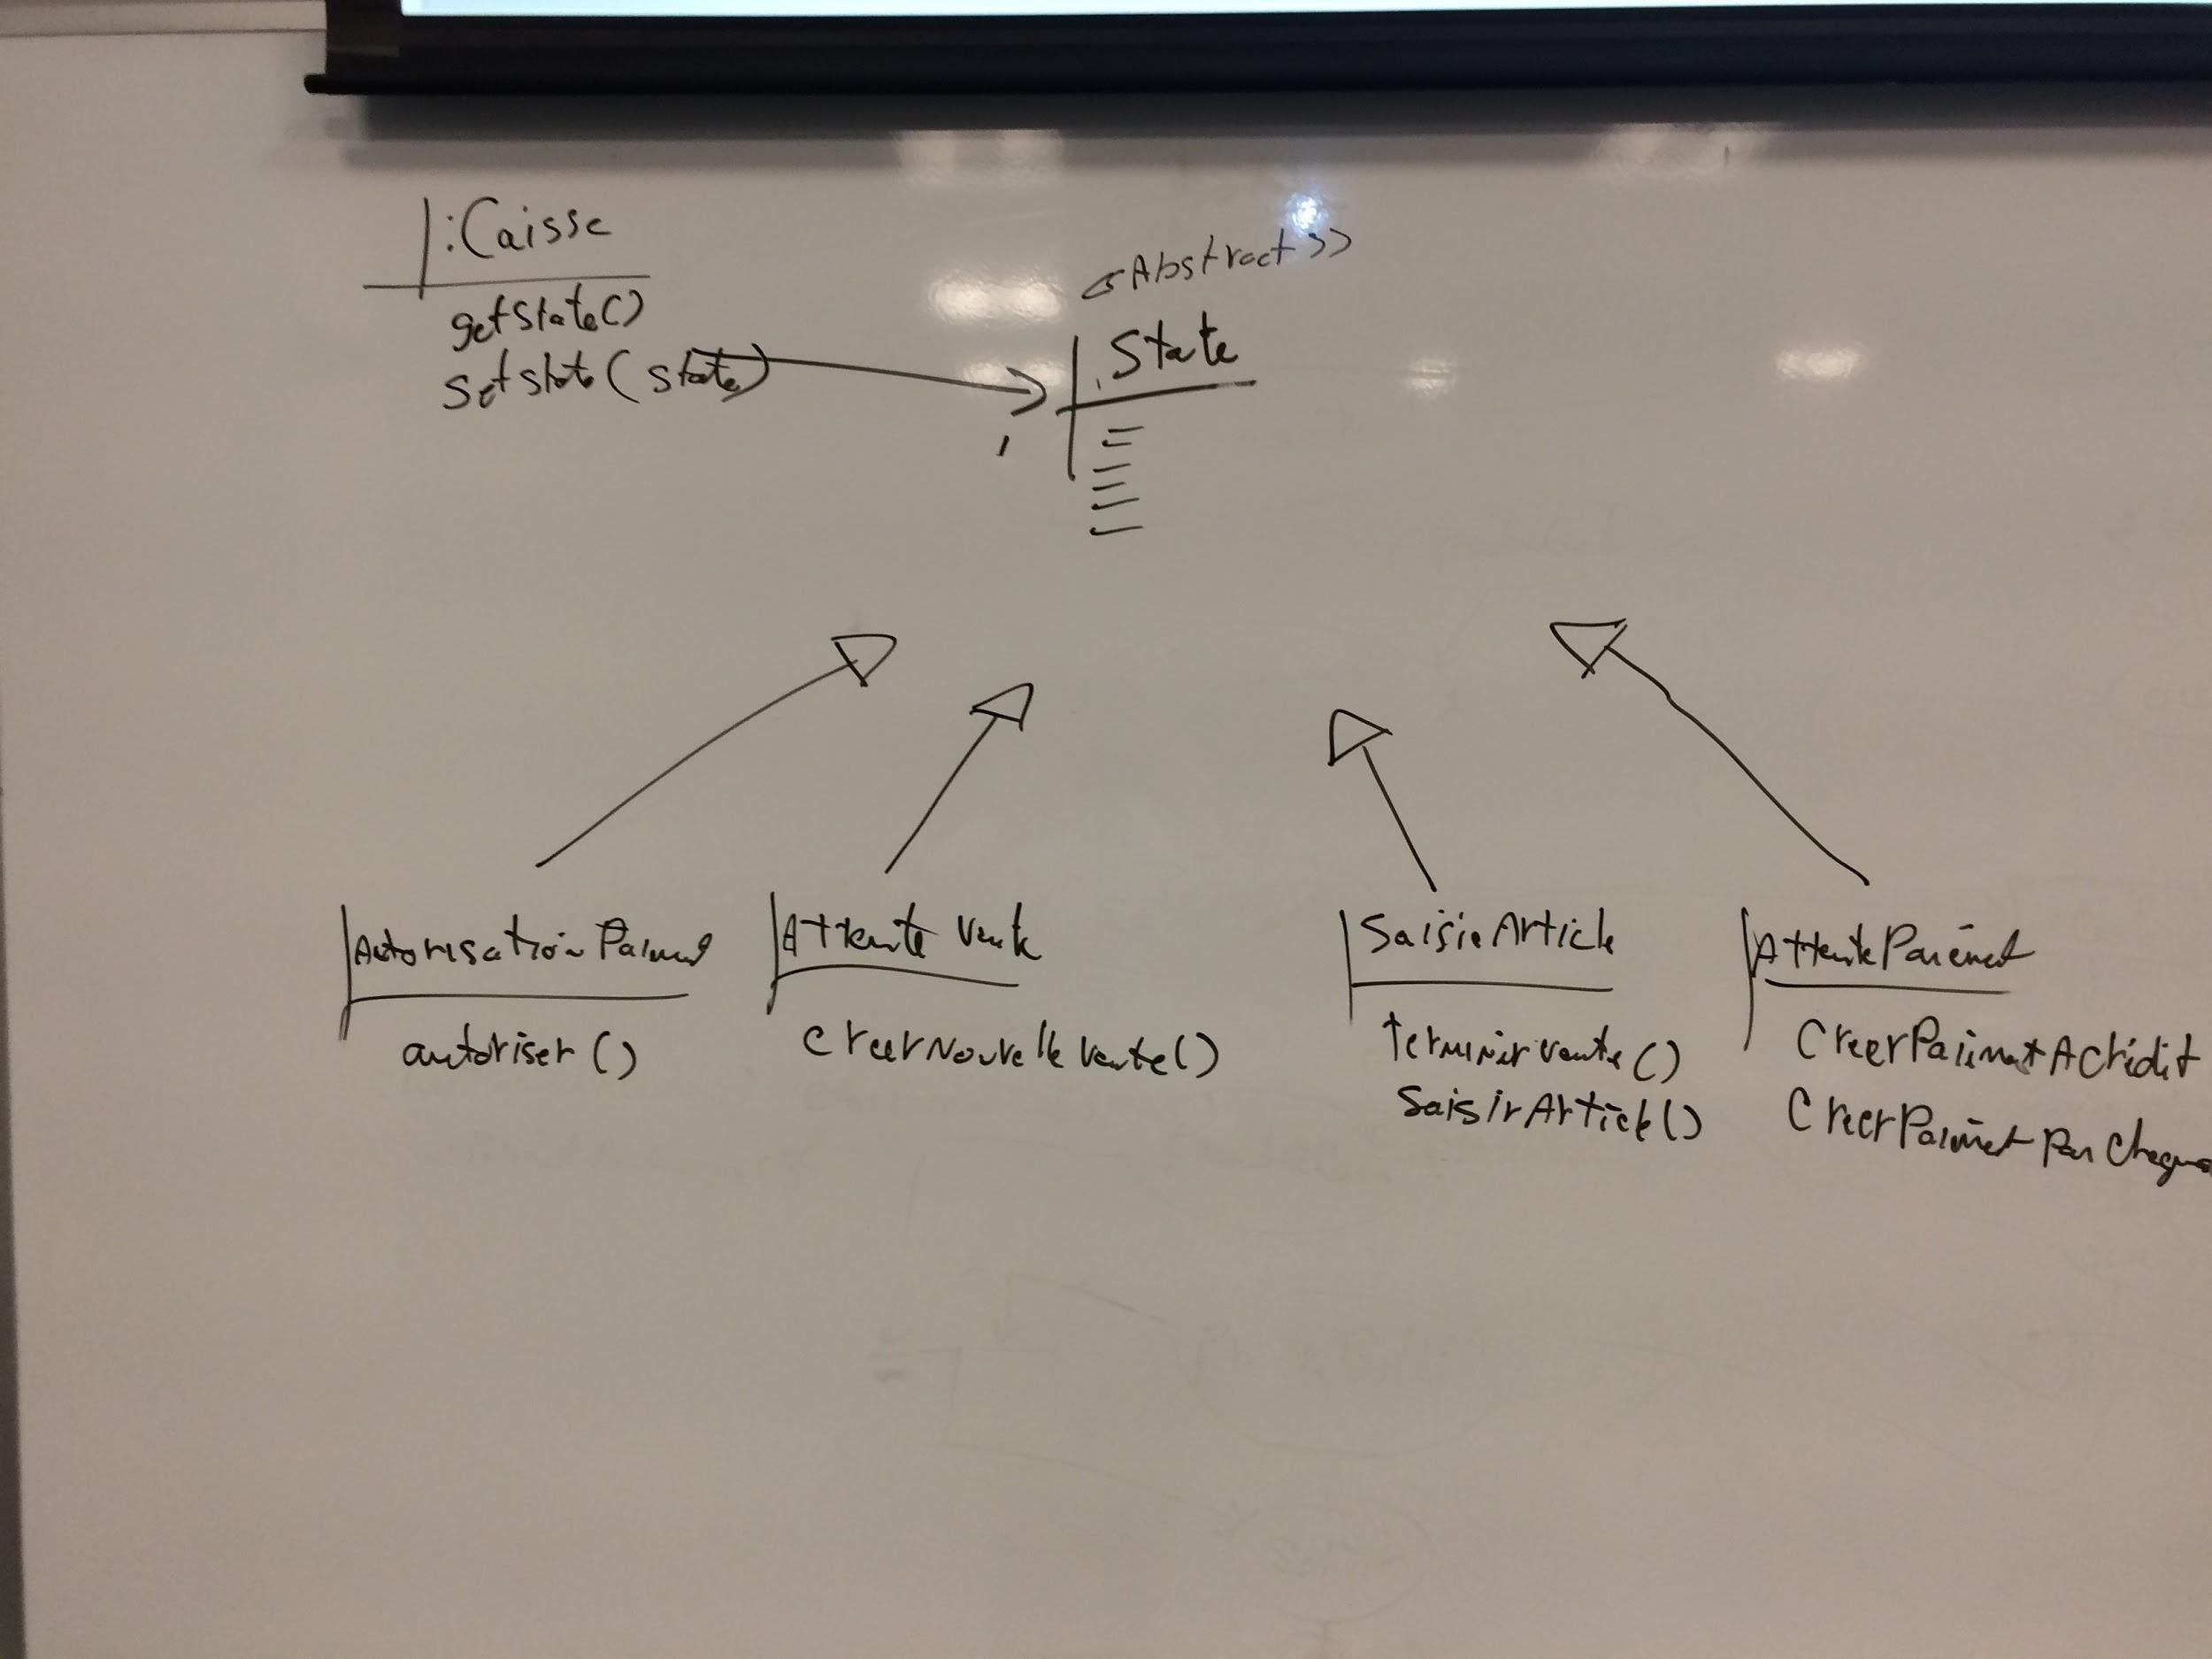 :Caisse
getState()
setState(state)
<<Abstract>>
State
1
Autorisation Paiment
autoriser()
Attente Vente
creerNouvelleVente()
SaisieArticle
terminerVente()
SaisirArticle()
AttentePaiement
CreerPaiimentACrédit
CreerPaiment par Cheque